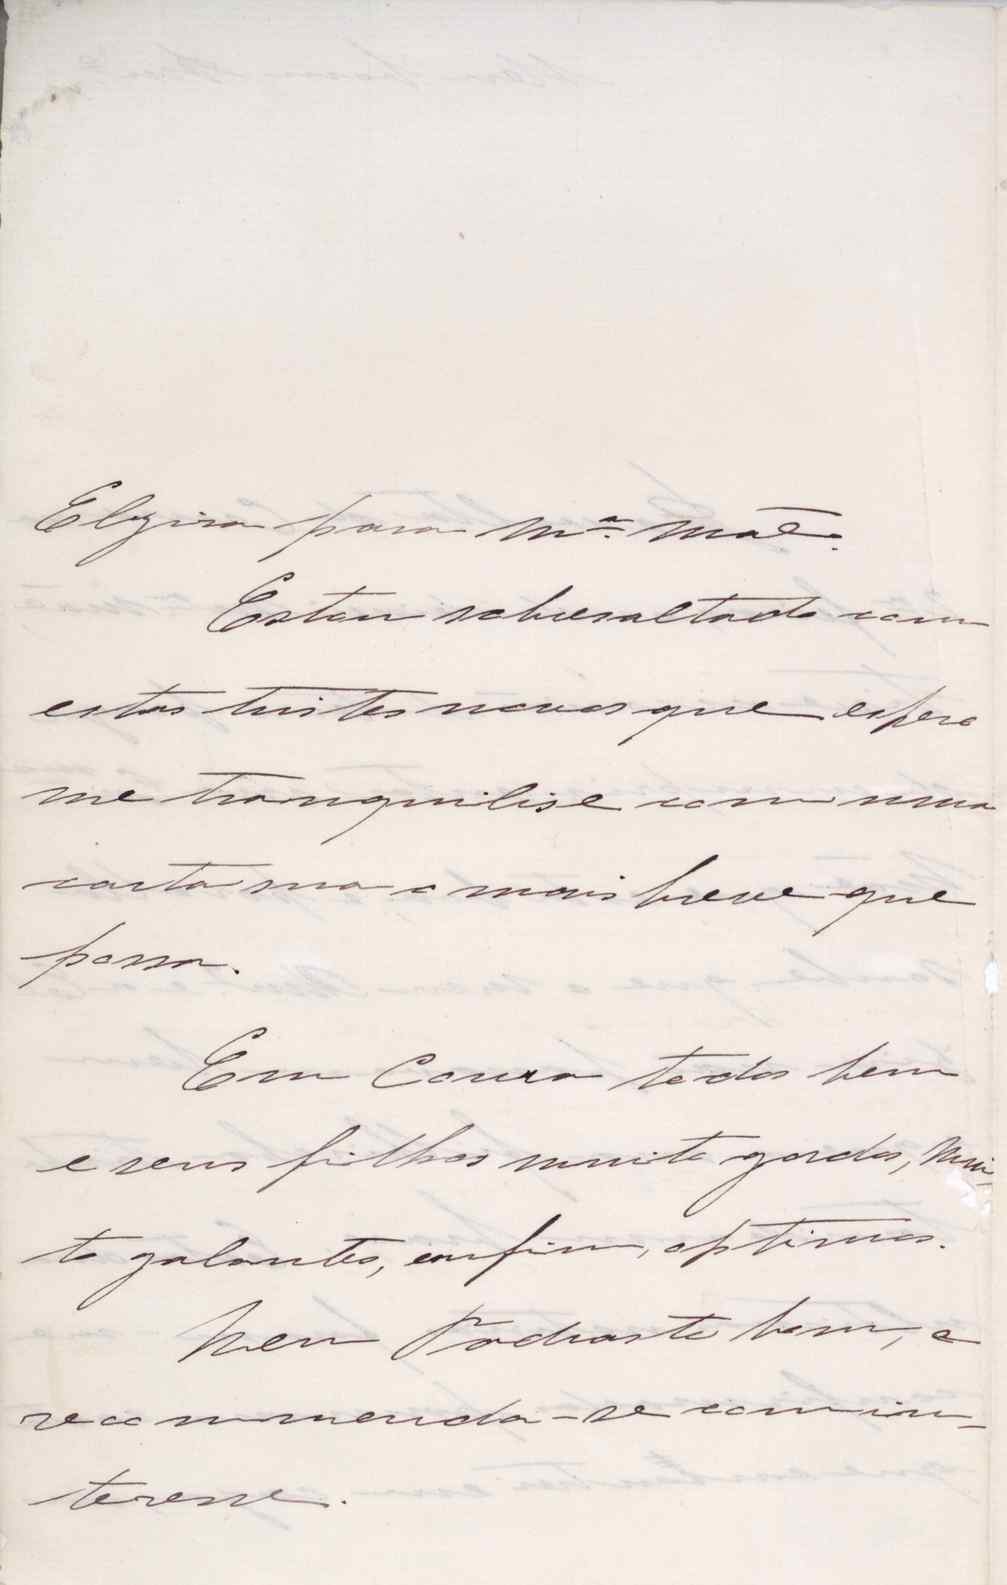 Elyzira para m.ª mãe.
Estou sobresaltado com
estas tristes novas que espero
me tranquilise com uma
carta sua o mais breve que
possa.
Em Coura todos bem
e seus filhos muito gordos, mui-
to galantes, emfim, optimos.
Meu Padrasto bem, e
recommenda-se com in-
teresse.